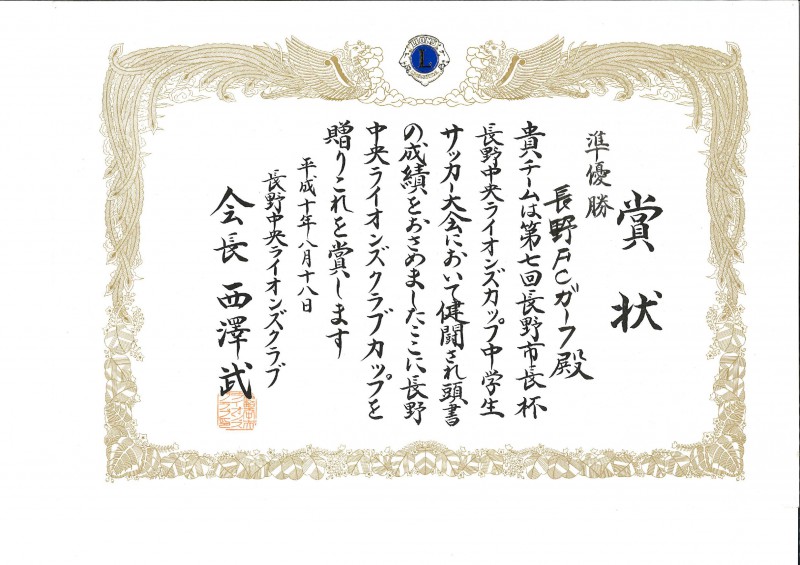 賞状
準優勝
長野FCガーフ殿
貴チームは第七回長野市長杯
長野中央ライオンズカップ中学生
サッカー大会において健闘され頭書
の成績をおさめましたここに長野
中央ライオンズクラブカップを
贈りこれを賞します
平成十年八月十八日
長野中央ライオンズクラブ
会長 西澤武
L